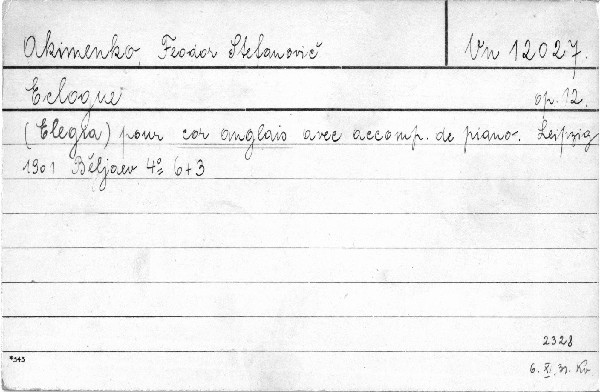 Akimenko, Feodor Stefanovič Vn 12027.
Eclogue op. 12.
(Elegia) pour cor anglais avec accomp. de piano. Leipzig
1901 Běljaev 4º 6+3
2328
*343
6. XI. 31. Kv